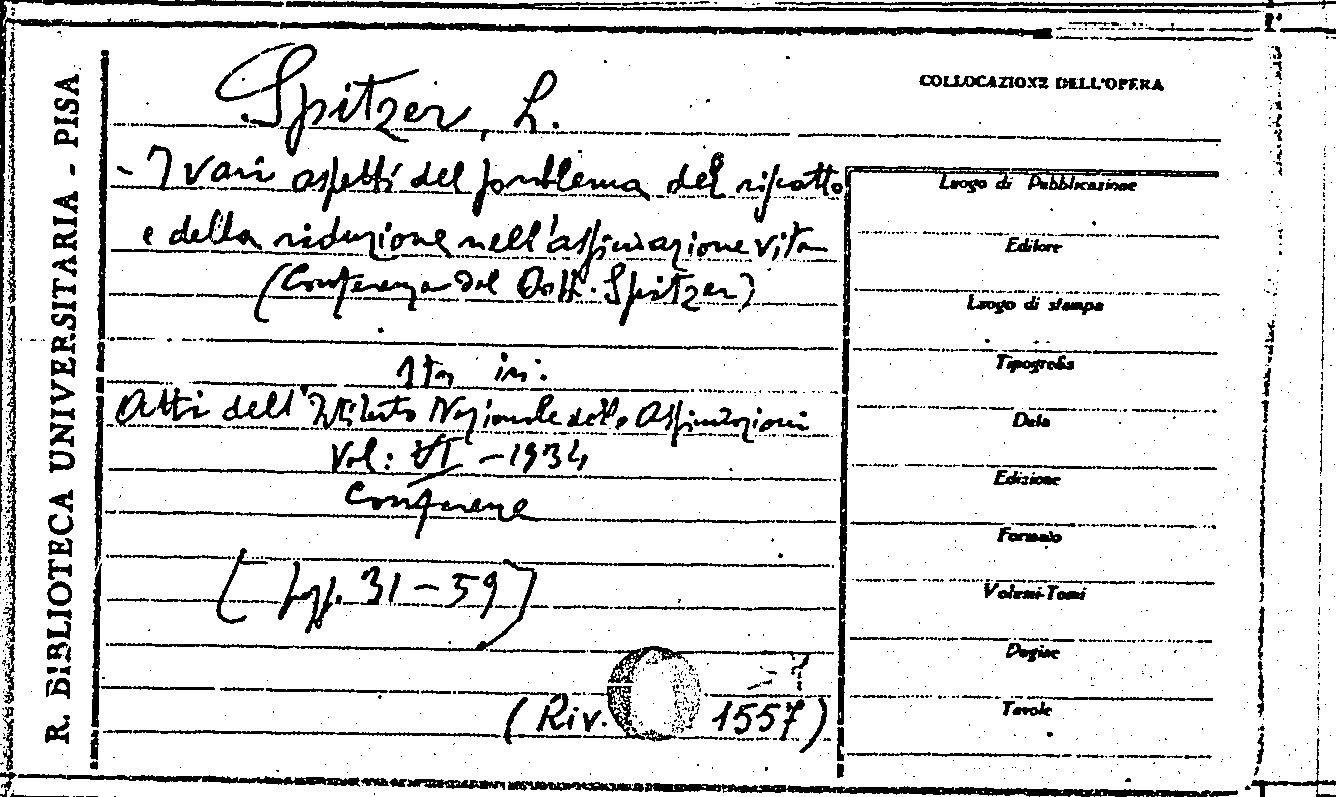 R. BIBLIOTECA UNIVERSITARIA - PISA
COLLOCAZIONE DELL'OPERA
Spitzer, L.
- I vari aspetti del problema del riscatto
e della riduzione nell'assicurazione vita
(Conferenza del Dott. Spitzer)
Sta in:
Atti dell'Istituto Nazionale delle Assicurazioni
Vol: VI - 1934
Conferenze
(pp. 31 - 59)
(Riv. 1557)
Luogo di Pubblicazione
Editore
Luogo di stampa
Tipografia
Data
Edizione
Formato
Volumi-Tomi
Pagine
Tavole